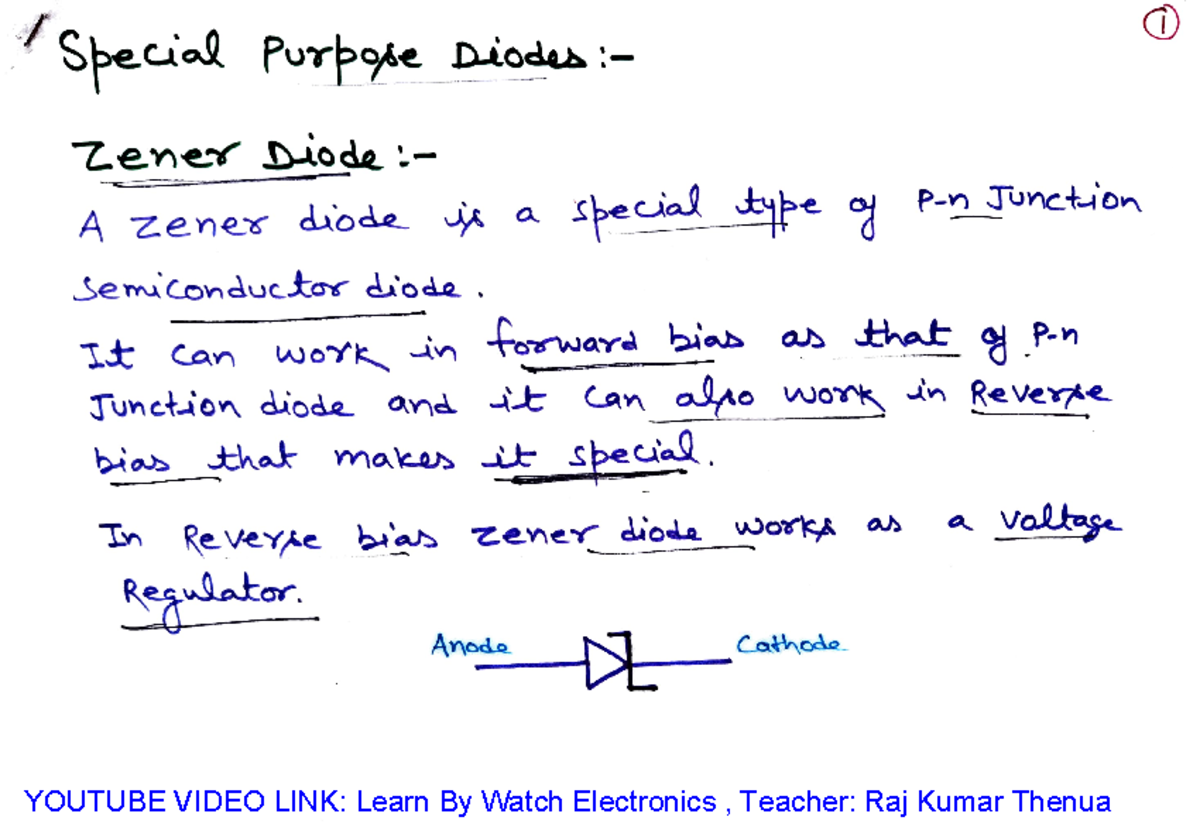 ①
Special Purpose Diodes :-
Zener Diode :-
A zener diode is a special type of P-n Junction
Semiconductor diode .
It can work in forward bias as that of P-n
Junction diode and it can also work in Reverse
bias that makes it special.
In Reverse bias zener diode works as a voltage
Regulator.
Anode
Cathode
YOUTUBE VIDEO LINK: Learn By Watch Electronics , Teacher: Raj Kumar Thenua